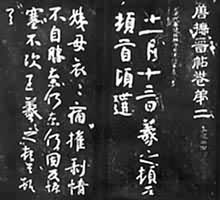 唐摹晉帖卷第二
十一月十三日羲之頓首
頓首頃遘
姨母哀哀痛摧剝情
不自勝奈何奈何因反慘
塞不次王羲之頓首頓
首